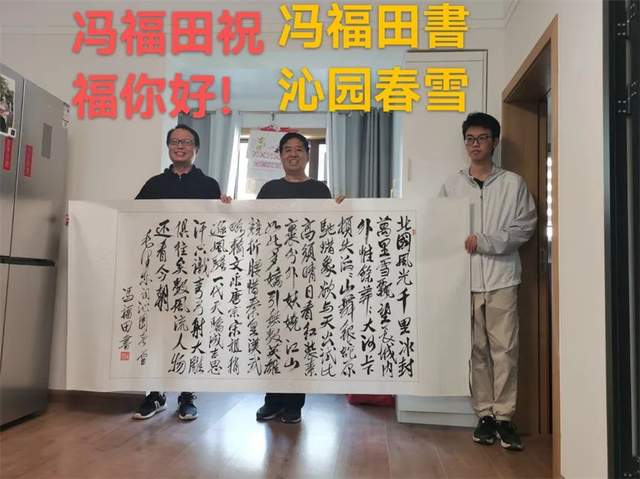 冯福田祝
福你好!
冯福田書
沁园春雪
北國風光千里冰封
萬里雪飄望長城内
外惟餘莽莽大河上下
頓失滔滔山舞銀蛇原
馳蠟象欲与天公試比
高須晴日看红装素
裹分外妖嬈江山
如此多嬌引無數英雄
競折腰惜秦皇漢武
略輸文采唐宗宋祖稍
遜風騷一代天驕成吉思
汗只識彎弓射大雕
俱往矣數風流人物
还看今朝
毛泽东沁園春雪
冯福田書